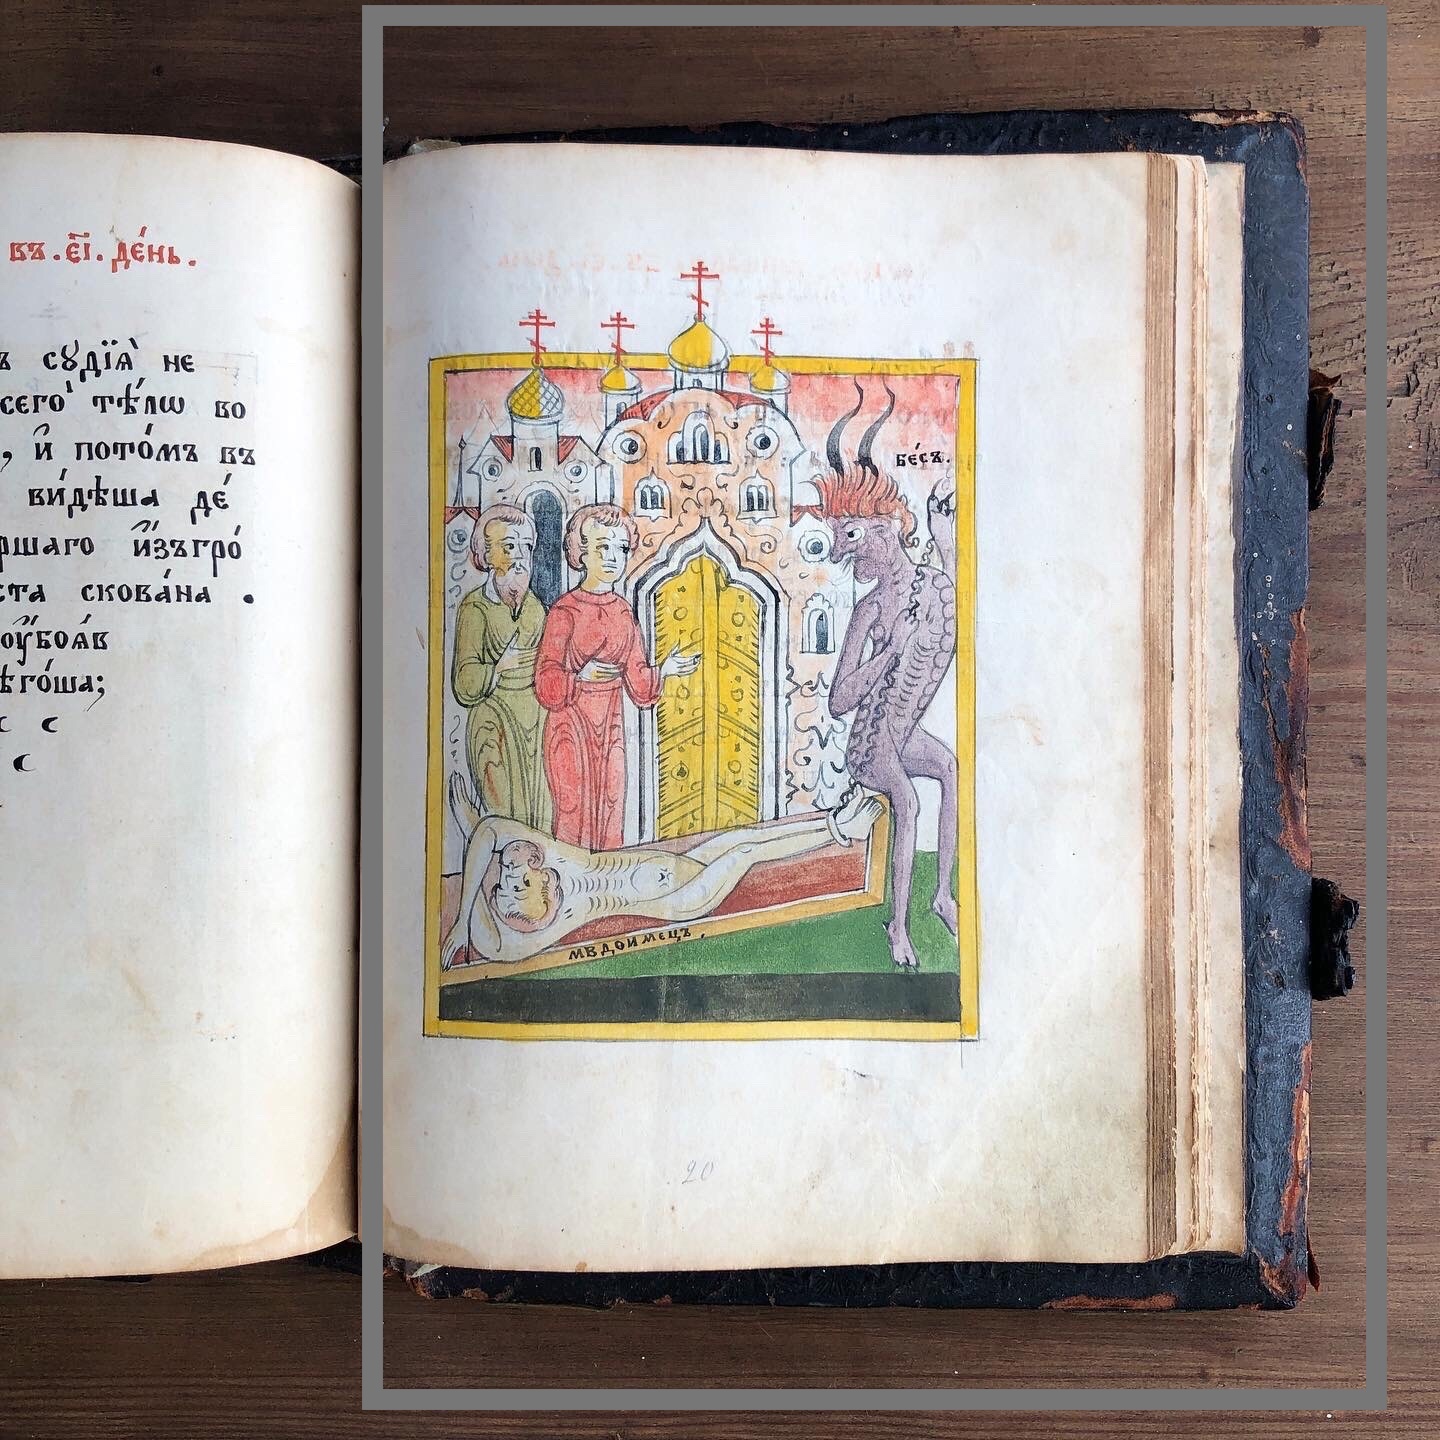 въ . є҃і . де́нь .
сꙋдїѧ̀ не
сего̀ тѣ́лѡ во
, и҆ пото́мъ въ
ви́дѣша де́
ршаго и҆згро́
ста скова́на .
ᲂу҆боѧ́в
ѣго́ша;
бе́съ.
мздоимецъ.
20